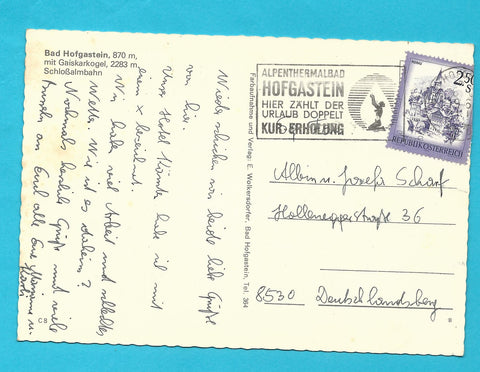 Bad Hofgastein, 870 m,
mit Gaiskarkogel, 2283 m
Schloßalmbahn
Wieder schicken wir beide liebe Grüße
von hier.
Unser Hotel Kärnten habe ich mit
einem x bezeichnet.
Wir habe viel Arbeit und schlechtes
Wetter. Wie ist es daheim?
Nochmals herzliche Grüße und viele
Busseln an Euch alle Eure Marianne u.
Farbaufnahme und Verlag: E. Wolkersdorfer, Bad Hofgastein, Tel. 364
ALPENTHERMALBAD
HOFGASTEIN
HIER ZÄHLT DER
URLAUB DOPPELT
KUR-ERHOLUNG
2.50
S
REPUBLIK ÖSTERREICH
Albin u. Josefa Scharf
Holleneggerstraße 36
8530 Deutschlandsberg